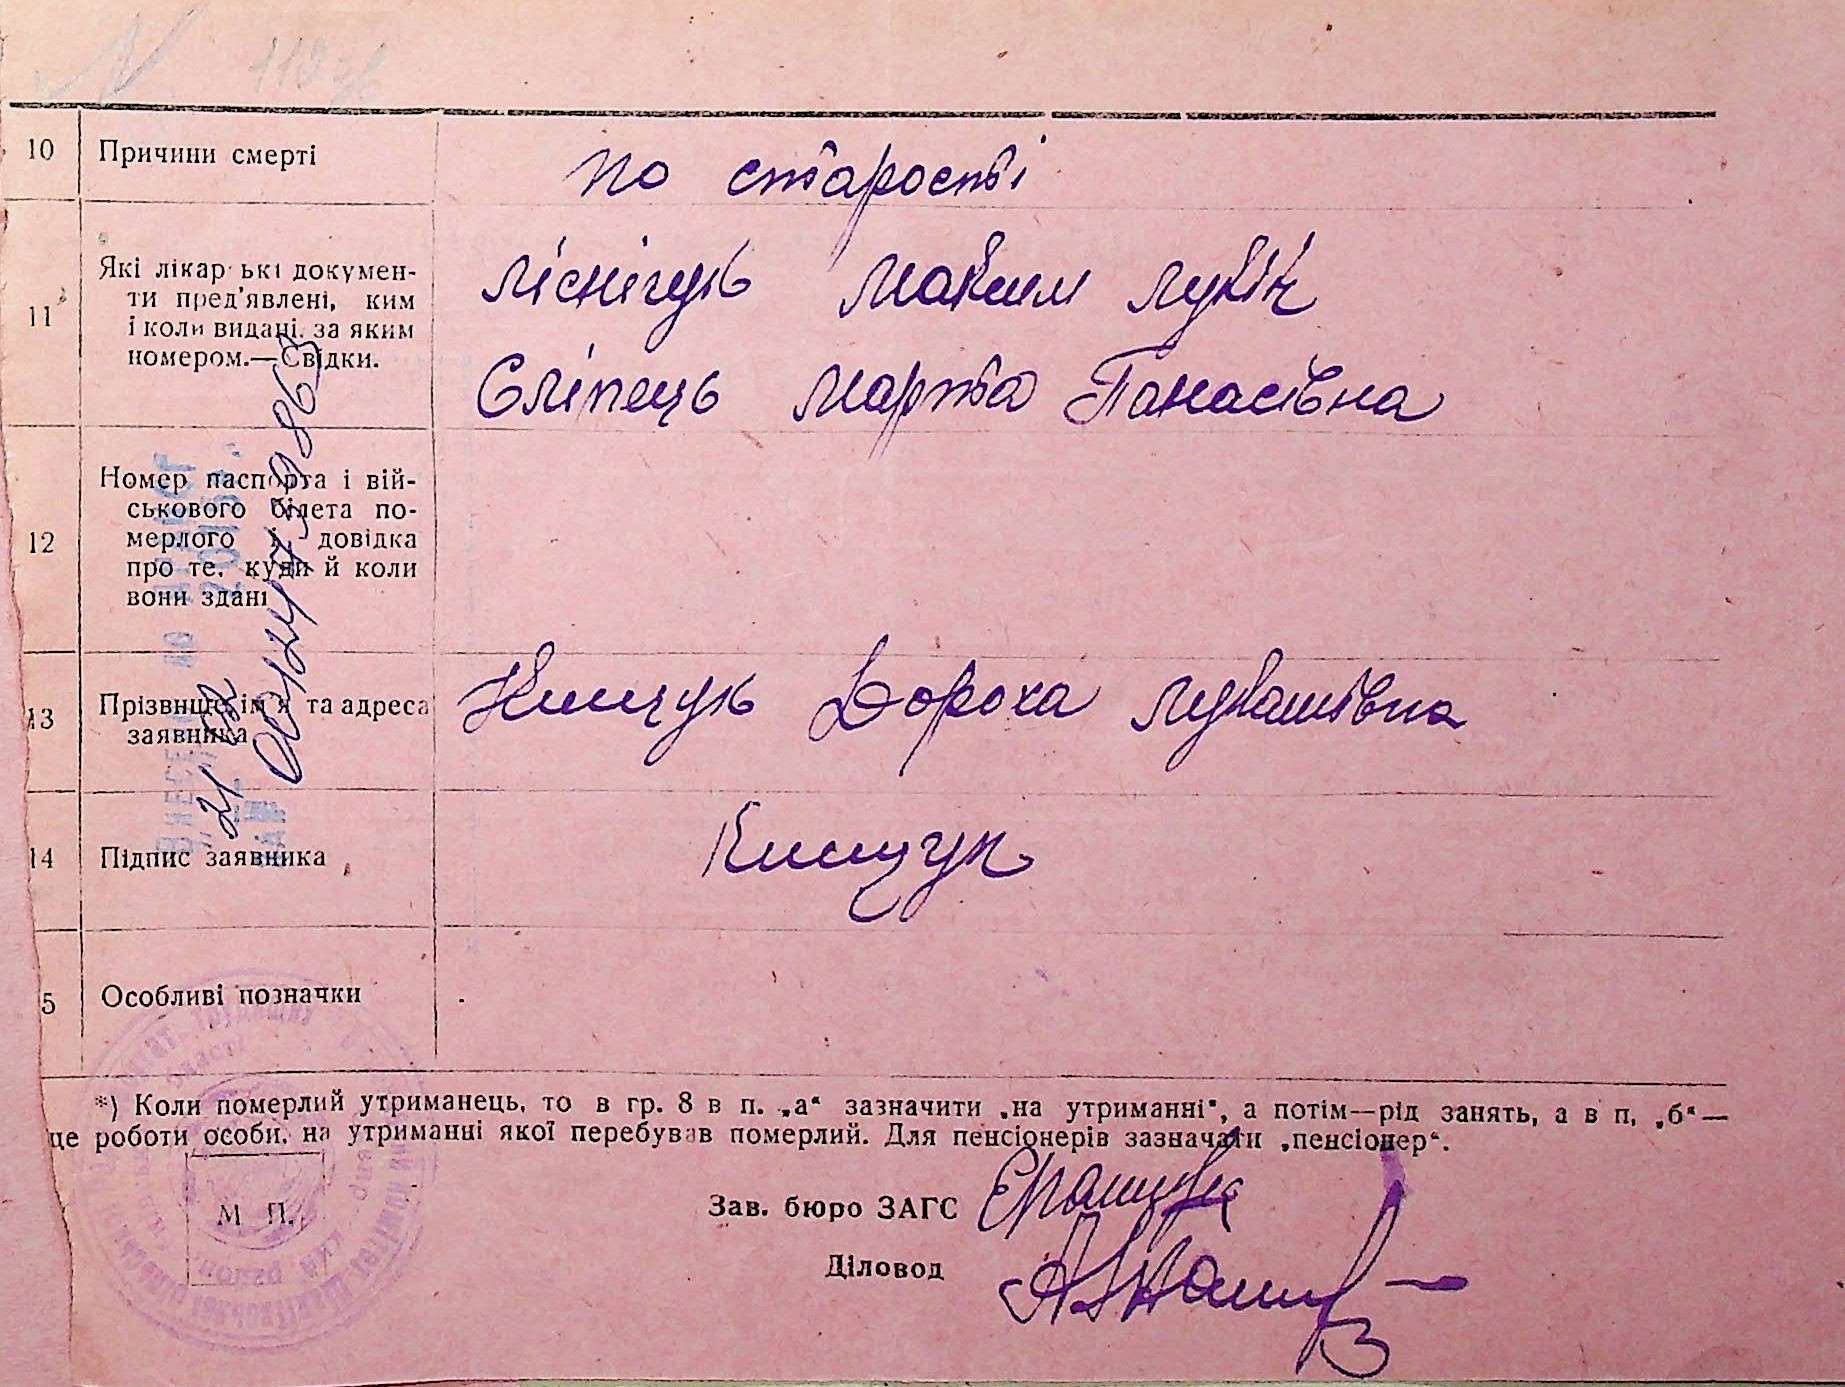 10 Причини смерті по старості
11 Які лікарські докумен-
ти пред'явлені, ким
і коли видані, за яким
номером.—Свідки.
Максим
Сліпець Марта Панасівна
12 Номер паспорта і вій-
ськового білета по-
мерлого і довідка
про те, куди й коли
вони здані
13 Прізвище, ім'я та адреса
заявника
Кищук Дороха Лукашівна
14 Підпис заявника Кищук
5 Особливі позначки
*) Коли померлий утриманець, то в гр. 8 в п. „а“ зазначити „на утриманні“, а потім—рід занять, а в п, „б“—
це роботи особи, на утриманні якої перебував померлий. Для пенсіонерів зазначати „пенсіонер“.
Зав. бюро ЗАГС
М П.
Діловод